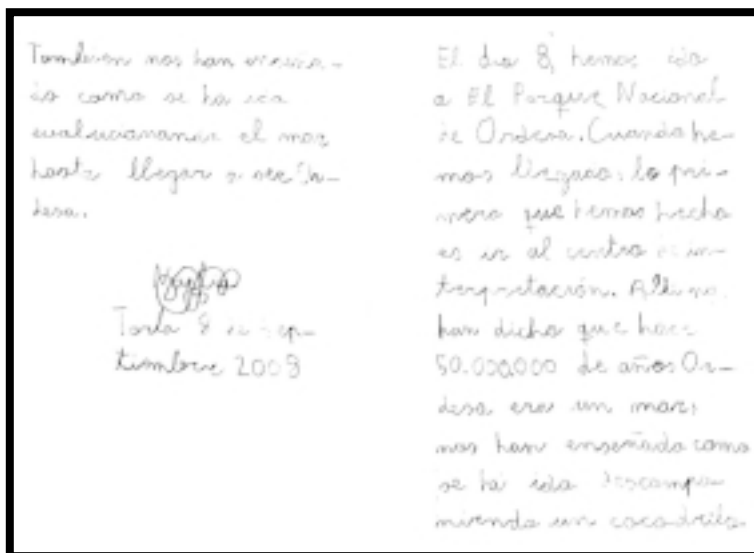 También nos han enseña-
do como se ha ida
evalucionando el mar
hasta llegar a ser Or-
desa.
Torla 8 de sep-
tiembre 2009
El día 8, hemos ido
a El Parque Nacional
de Ordesa. Cuando he-
mos llegado, lo pri-
mero que hemos hecho
es ir al centro de in-
terpretación. Allí nos
han dicho que hace
50.000.000 de años Or-
desa era un mar,
nos han enseñado como
se ha ido descompo-
niendo un cocodrilo